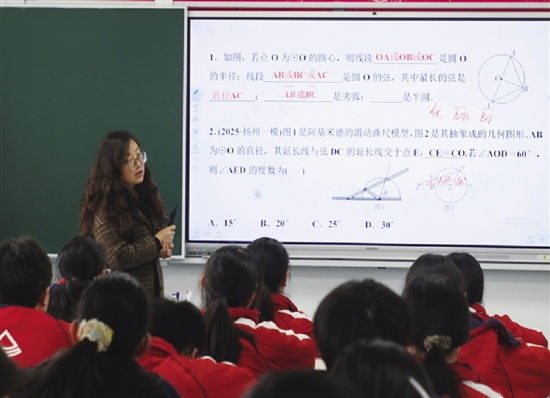 1. 如图，若点 O 为⊙O 的圆心，则线段 OA或OB或OC 是圆 O
的半径；线段 AB或BC或AC 是圆 O 的弦，其中最长的弦是
直径AC ； AB或BC 是劣弧； 是半圆.
2. (2025·扬州一模)图1是阿基米德的滑动曲尺模型，图2是其抽象成的几何图形，AB
为⊙O 的直径，其延长线与弦 DC 的延长线交于点 E，CE=CO，若∠AOD=60°，
则∠AED 的度数为( )
图1
图2
A. 15°
B. 20°
C. 25°
D. 30°
A
O
B